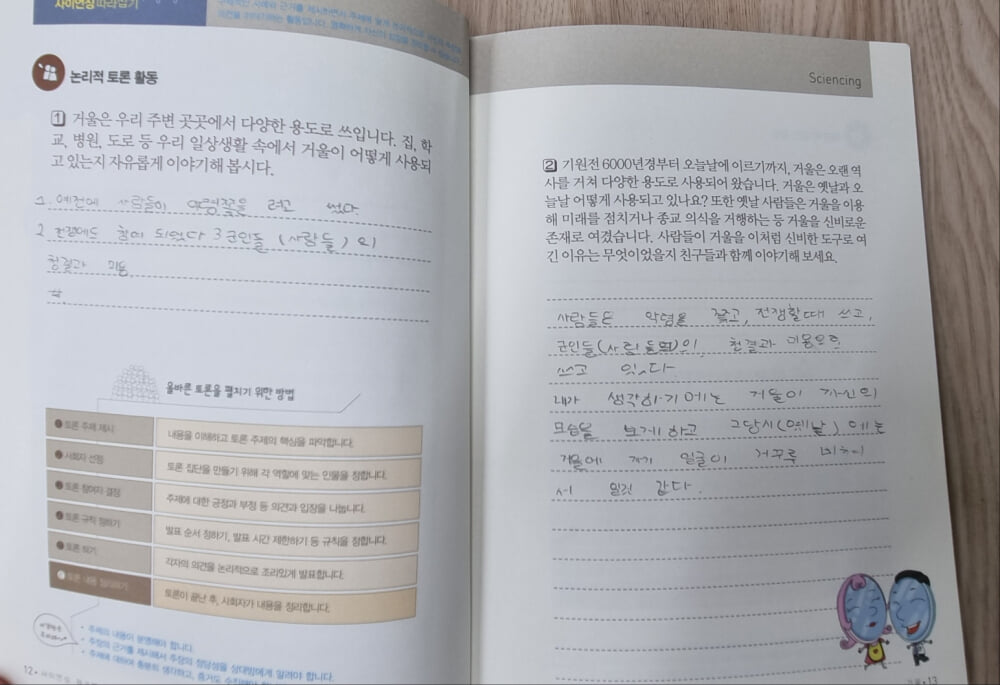 사이언싱 따라잡기
논리적 토론 활동
1 거울은 우리 주변 곳곳에서 다양한 용도로 쓰입니다. 집, 학
교, 병원, 도로 등 우리 일상생활 속에서 거울이 어떻게 사용되
고 있는지 자유롭게 이야기해 봅시다.
1. 예전에 사람들이 악령쫓을 려고 썼다.
2 전쟁에도 참여 되었다 3 군인들 (사람들) 의
청결과 미용
올바른 토론을 펼치기 위한 방법
토론 주제 제시 내용을 이해하고 토론 주제의 핵심을 파악합니다.
사회자 선정 토론 집단을 만들기 위해 각 역할에 맞는 인물을 정합니다.
토론 참여자 결정 주제에 대한 긍정과 부정 등 의견과 입장을 나눕니다.
토론 규칙 정하기 발표 순서 정하기, 발표 시간 제한하기 등 규칙을 정합니다.
토론 하기 각자의 의견을 논리적으로 조리있게 발표합니다.
토론 내용 정리하기 토론이 끝난 후, 사회자가 내용을 정리합니다.
• 주제의 내용이 분명해야 합니다.
• 주장의 근거를 제시해서 주장의 정당성을 상대방에게 알려야 합니다.
• 주제에 대하여 충분히 생각하고,
12•
Sciencing
2 기원전 6000년경부터 오늘날에 이르기까지, 거울은 오랜 역
사를 거쳐 다양한 용도로 사용되어 왔습니다. 거울은 옛날과 오
늘날 어떻게 사용되고 있나요? 또한 옛날 사람들은 거울을 이용
해 미래를 점치거나 종교 의식을 거행하는 등 거울을 신비로운
존재로 여겼습니다. 사람들이 거울을 이처럼 신비한 도구로 여
긴 이유는 무엇이었을지 친구들과 함께 이야기해 보세요.
사람들은 악령을 쫓고, 전쟁할때 쓰고,
군인들(사람들)의 천결과 미용으로
쓰고 있다
내가 생각하기에는 거울이 자신의
모습을 보게하고 그당시(옛날)에는
거울에 자기 얼굴이 거꾸로 비춰
서 일것 같다.
거울•13